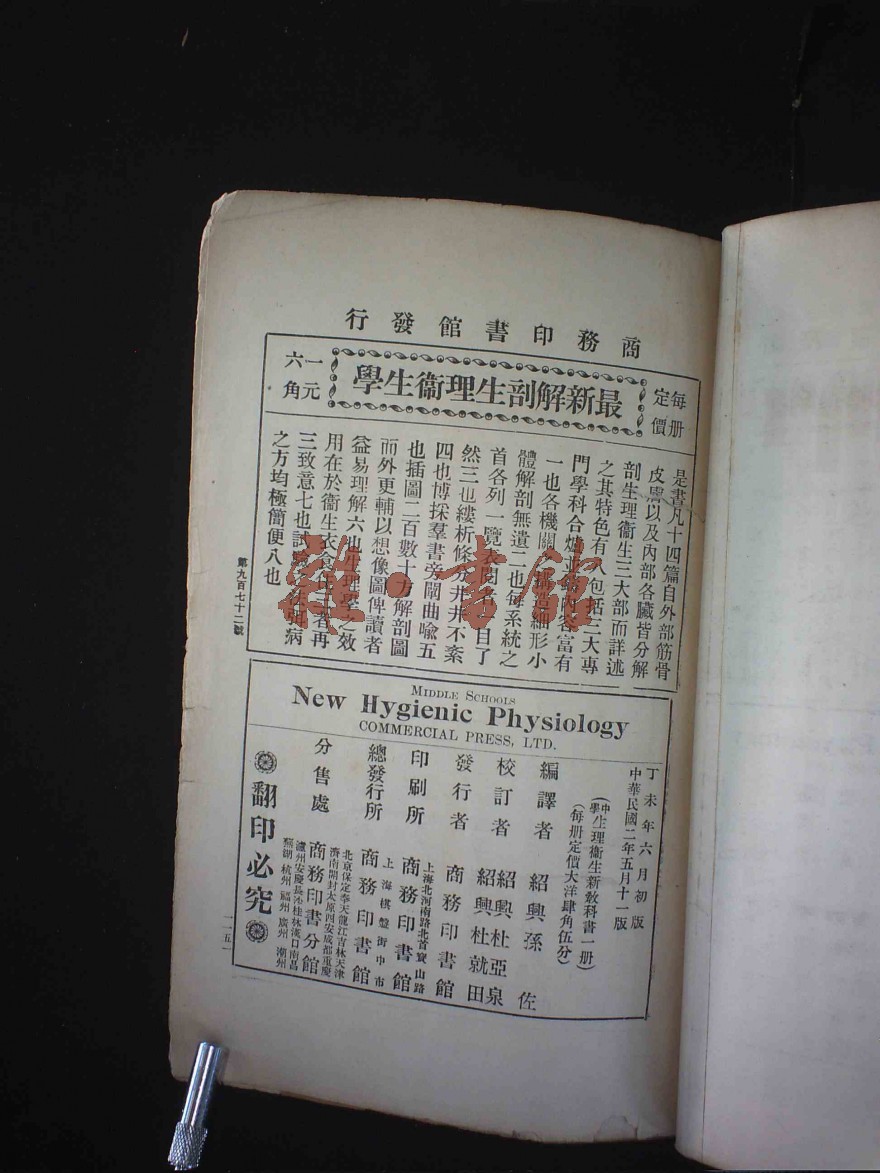 商務印書館發行
每册定價
最新解剖生理衞生學
一元六角
是書凡十四篇自外部筋骨
皮膚以及內部各臟皆分解
剖生理衞生三大部而詳述
之其特色有八包括三大專
門學科合爐並鑄內容富有
一也各機關之構造細形小
體解剖無遺二也每系統之
首各列一覽表閱者一目了
然三也縷析條分井井不紊
四也博採羣書旁闢曲喩五
也插圖二百數十方解剖圖
而外更輔以想像圖俾讀者
益易理解六也生理學之效
用在於衞生衣食住三者再
三致意七也試驗
病
之方均極簡便八也
第九百七十二號
MIDDLE SCHOOLS
New Hygienic Physiology
COMMERCIAL PRESS, LTD.
丁未年六月初版
中華民國二年五月十一版
(中學生理衞生新敎科書一册)
(每册定價大洋肆角伍分)
編譯者 紹興孫佐
校訂者 紹興杜亞泉
紹興杜就田
發行者 商務印書館
印刷所 上海北河南路北首寶山路
商務印書館
總發行所 上海棋盤街中市
商務印書館
分售處 北京保定奉天龍江吉林天津
濟南開封太原西安成都重慶
商務印書分館
瀘州安慶長沙桂林漢口南昌
蕪湖杭州福州廣州潮州
翻印必究
二五一